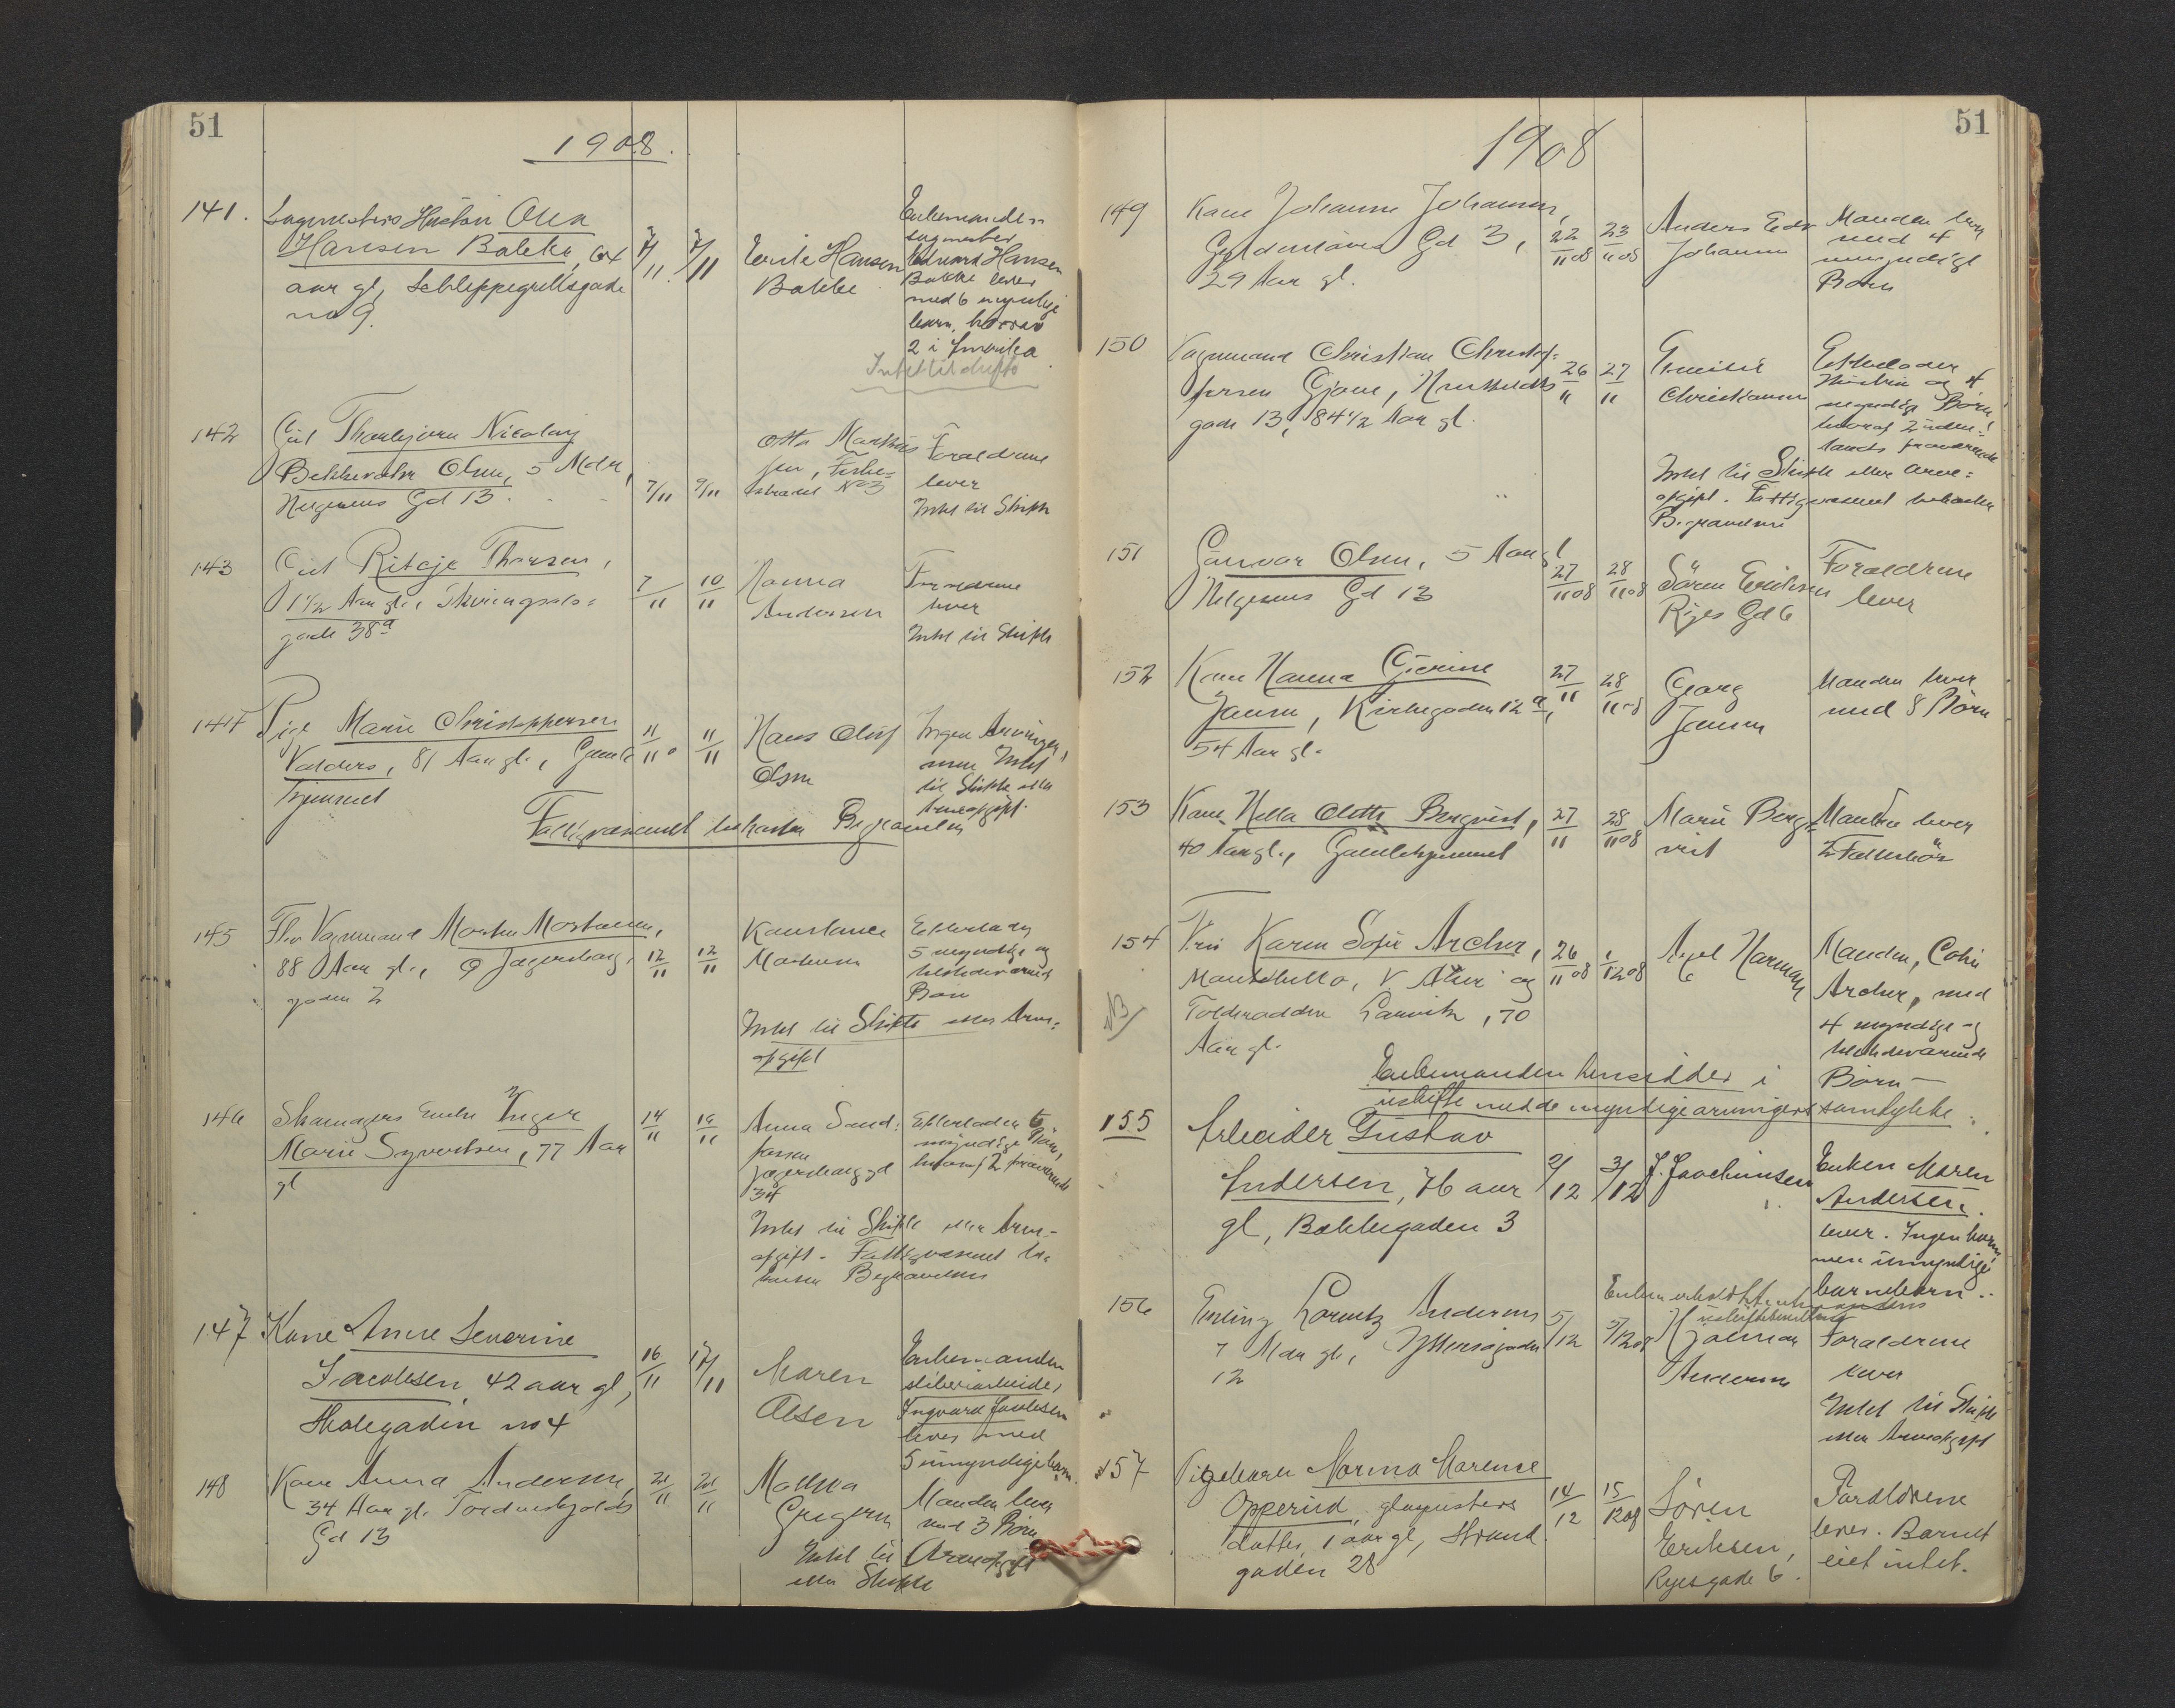 51
1908.
141. Sagmesters Hustru Olea
Hansen Bakke, 64
aar gl, Schleppegrellsgade
no 9.
7/11 7/11
Emile Hansen
Bakke
Enkemanden
sagmester
Edvard Hansen
Bakke lever
med 6 myndige
barn, hvorav
2 i Amerika
Intet til skifte
142 Gut Thorbjørn Nicolay
Bekkevahr Olsen, 5 Mdr,
Helgesens Gd 13.
7/11 9/11
Otto Markus
sen, Torke-
strædet No 3
Forældrene
lever
Intet til Skifte
143 Gut Ritaje Thorsen,
1 1/2 Aar gl.,
gade 38a
7/11 10/11
Hanna
Andersen
Forældrene
lever
Intet til Skifte
144 Pige Marie Christophersen
Valders, 81 Aar gl., Gamle
hjemmet
11/11 11/11
Hans Oluf
Olsen
Ingen Arvinger,
men Intet
til Skifte eller
Arveafgift.
Fattigvæsenet bekoster Begravelsen
145 Fhv Vognmand Morten Mortensen,
88 Aar gl., Jegersborg-
gaden 2
12/11 12/11
Konstance
Mortensen
Efterlader
5 myndige og
tilstedeværende
Børn
Intet til Skifte eller Arve-
afgift
146 Skomagers Enke Inger
Marie Syvertsen, 77 Aar
gl
14/11 16/11
Anna Sand-
Jegersborg gd
34
Efterlader 6
myndige Børn,
hvoraf 2 fraværende
Intet til Skifte eller Arve-
afgift. Fattigvæsenet be-
koster Begravelsen
147 Kone Anne Severine
Jacobsen, 42 aar gl,
Skolegaden no 4
16/11 17/11
Maren
Olsen
Enkemanden
sliberiarbeider
Ingvard Jacobsen
lever med
5 umyndige barn.
148 Kone Anna Andersen,
34 Aar gl. Tordenskjolds
Gd 13
21/11 21/11
Mathea
Gregersen
Manden lever
med 3 Børn
Intet til Arveafgift
eller Skifte
51
1908
149 Kone Johanne Johansen,
Gyldenløves Gd 3,
29 Aar gl.
22/11 08 23/11 08
Anders Edv
Johansen
Manden lever
med 4
umyndige
Børn
150 Vognmand Christian Christof-
fersen Gjone,
gade 13, 84 1/2 Aar gl.
26/11 27/11
Emilie
Christiansen
Efterlader
Hustru og 4
myndige Børn
hvoraf 2 uden-
lands fraværende
Intet til Skifte eller Arve-
afgift. Fattigvæsenet bekoster
Begravelsen
151 Gunvor Olsen, 5 Aar gl
Helgesens Gd 13
27/11 08 28/11 08
Søren Eriksen
Ryes Gd 6
Forældrene
lever
152 Kone Hanna Gjerine
Jansen, Kirkegaden 12 a,
54 Aar gl.
27/11 28/11 08
Georg
Jansen
Manden lever
med 8 Børn
153 Kone Hella Olette Bergvist,
40 Aar gl., Gamlehjemmet
27/11 28/11 08
Marie Berg-
vist
Manden lever
2 Fællesbørn
154 Fru Karen Sofie Archer,
Mandshullo, V. Atlier og
Tolderodden Larvik, 70
Aar gl.
NB/
26/11 08 1/12 08
Axel Harman
6
Manden, Colin
Archer, med
4 myndige og
tilstedeværende
Børn
Enkemanden hensidder i
uskifte med de myndige arvingers samtykke
155 Arbeider Gustav
Andersen, 76 aar
gl, Bakkegaden 3
2/12 3/12
J. Joachimsen
Enken Maren
Andersen
lever. Ingen barn
men umyndige
barnebarn.
156 Erling Lorentz Andersen
7 Mdr gl,
12
5/12 5/12 08
Hjalmar
Andersen
Forældrene
lever
Intet til Skifte
eller Arveafgift
157 Pigebarn Norma Marense
Opperud, glaspusters
datter, 1 aar gl, Strand
gaden 28
14/12 15/12 08
Søren
Eriksen,
Ryesgade 6.
Forældrene
lever. Barnet
eiet intet.